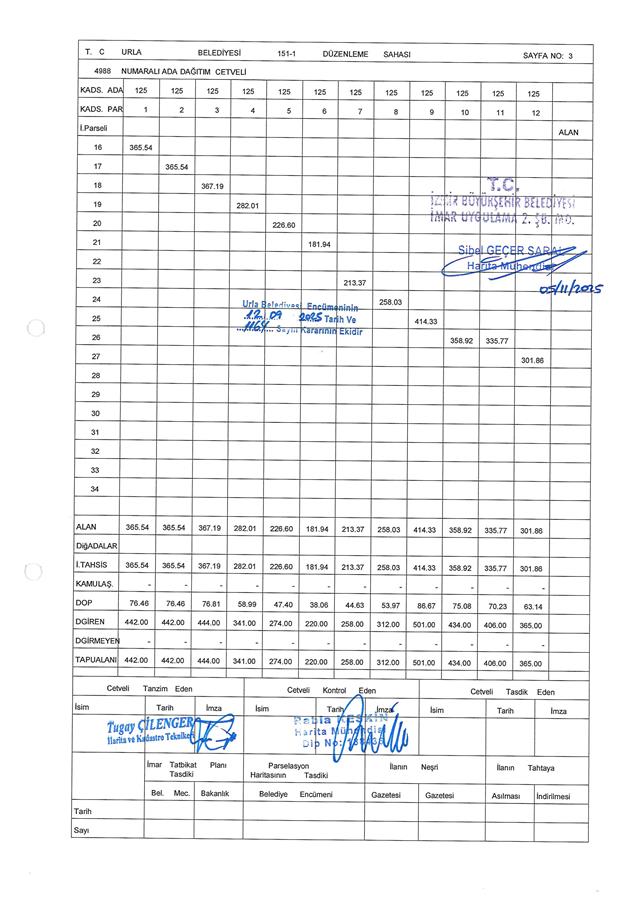 T. C URLA BELEDİYESİ 151-1 DÜZENLEME SAHASI SAYFA NO: 3
4988 NUMARALI ADA DAĞITIM CETVELİ
KADS. ADA 125 125 125 125 125 125 125 125 125 125 125 125
KADS. PAR 1 2 3 4 5 6 7 8 9 10 11 12
İ.Parseli ALAN
16 365.54
17 365.54
18 367.19
T.C.
İZMİR BÜYÜKŞEHİR BELEDİYESİ
19 282.01
İMAR UYGULAMA 2. ŞB. MD.
20 226.60
21 181.94
Sibel GEÇER SARAL
22
Harita Mühendisi
23 213.37
05/11/2025
24 258.03
Urla Belediyesi Encümeninin
12.09 2025 Tarih Ve
25 414.33
1164 Sayılı Kararının Ekidir
26 358.92 335.77
27 301.86
28
29
30
31
32
33
34
ALAN 365.54 365.54 367.19 282.01 226.60 181.94 213.37 258.03 414.33 358.92 335.77 301.86
DiğADALAR
İ.TAHSİS 365.54 365.54 367.19 282.01 226.60 181.94 213.37 258.03 414.33 358.92 335.77 301.86
KAMULAŞ. - - - - - - - - - - - -
DOP 76.46 76.46 76.81 58.99 47.40 38.06 44.63 53.97 86.67 75.08 70.23 63.14
DGİREN 442.00 442.00 444.00 341.00 274.00 220.00 258.00 312.00 501.00 434.00 406.00 365.00
DGİRMEYEN - - - - - - - - - - - -
TAPUALANI 442.00 442.00 444.00 341.00 274.00 220.00 258.00 312.00 501.00 434.00 406.00 365.00
Cetveli Tanzim Eden Cetveli Kontrol Eden Cetveli Tasdik Eden
İsim Tarih İmza İsim Tarih İmza İsim Tarih İmza
Tugay ÇİLENGER
Harita ve Kadastro Teknikeri
Rabia KESKİN
Harita Mühendisi
Dip No:
İmar Tatbikat Planı Parselasyon İlanın Neşri İlanın Tahtaya
Tasdiki Haritasının Tasdiki
Bel. Mec. Bakanlık Belediye Encümeni Gazetesi Gazetesi Asılması İndirilmesi
Tarih
Sayı